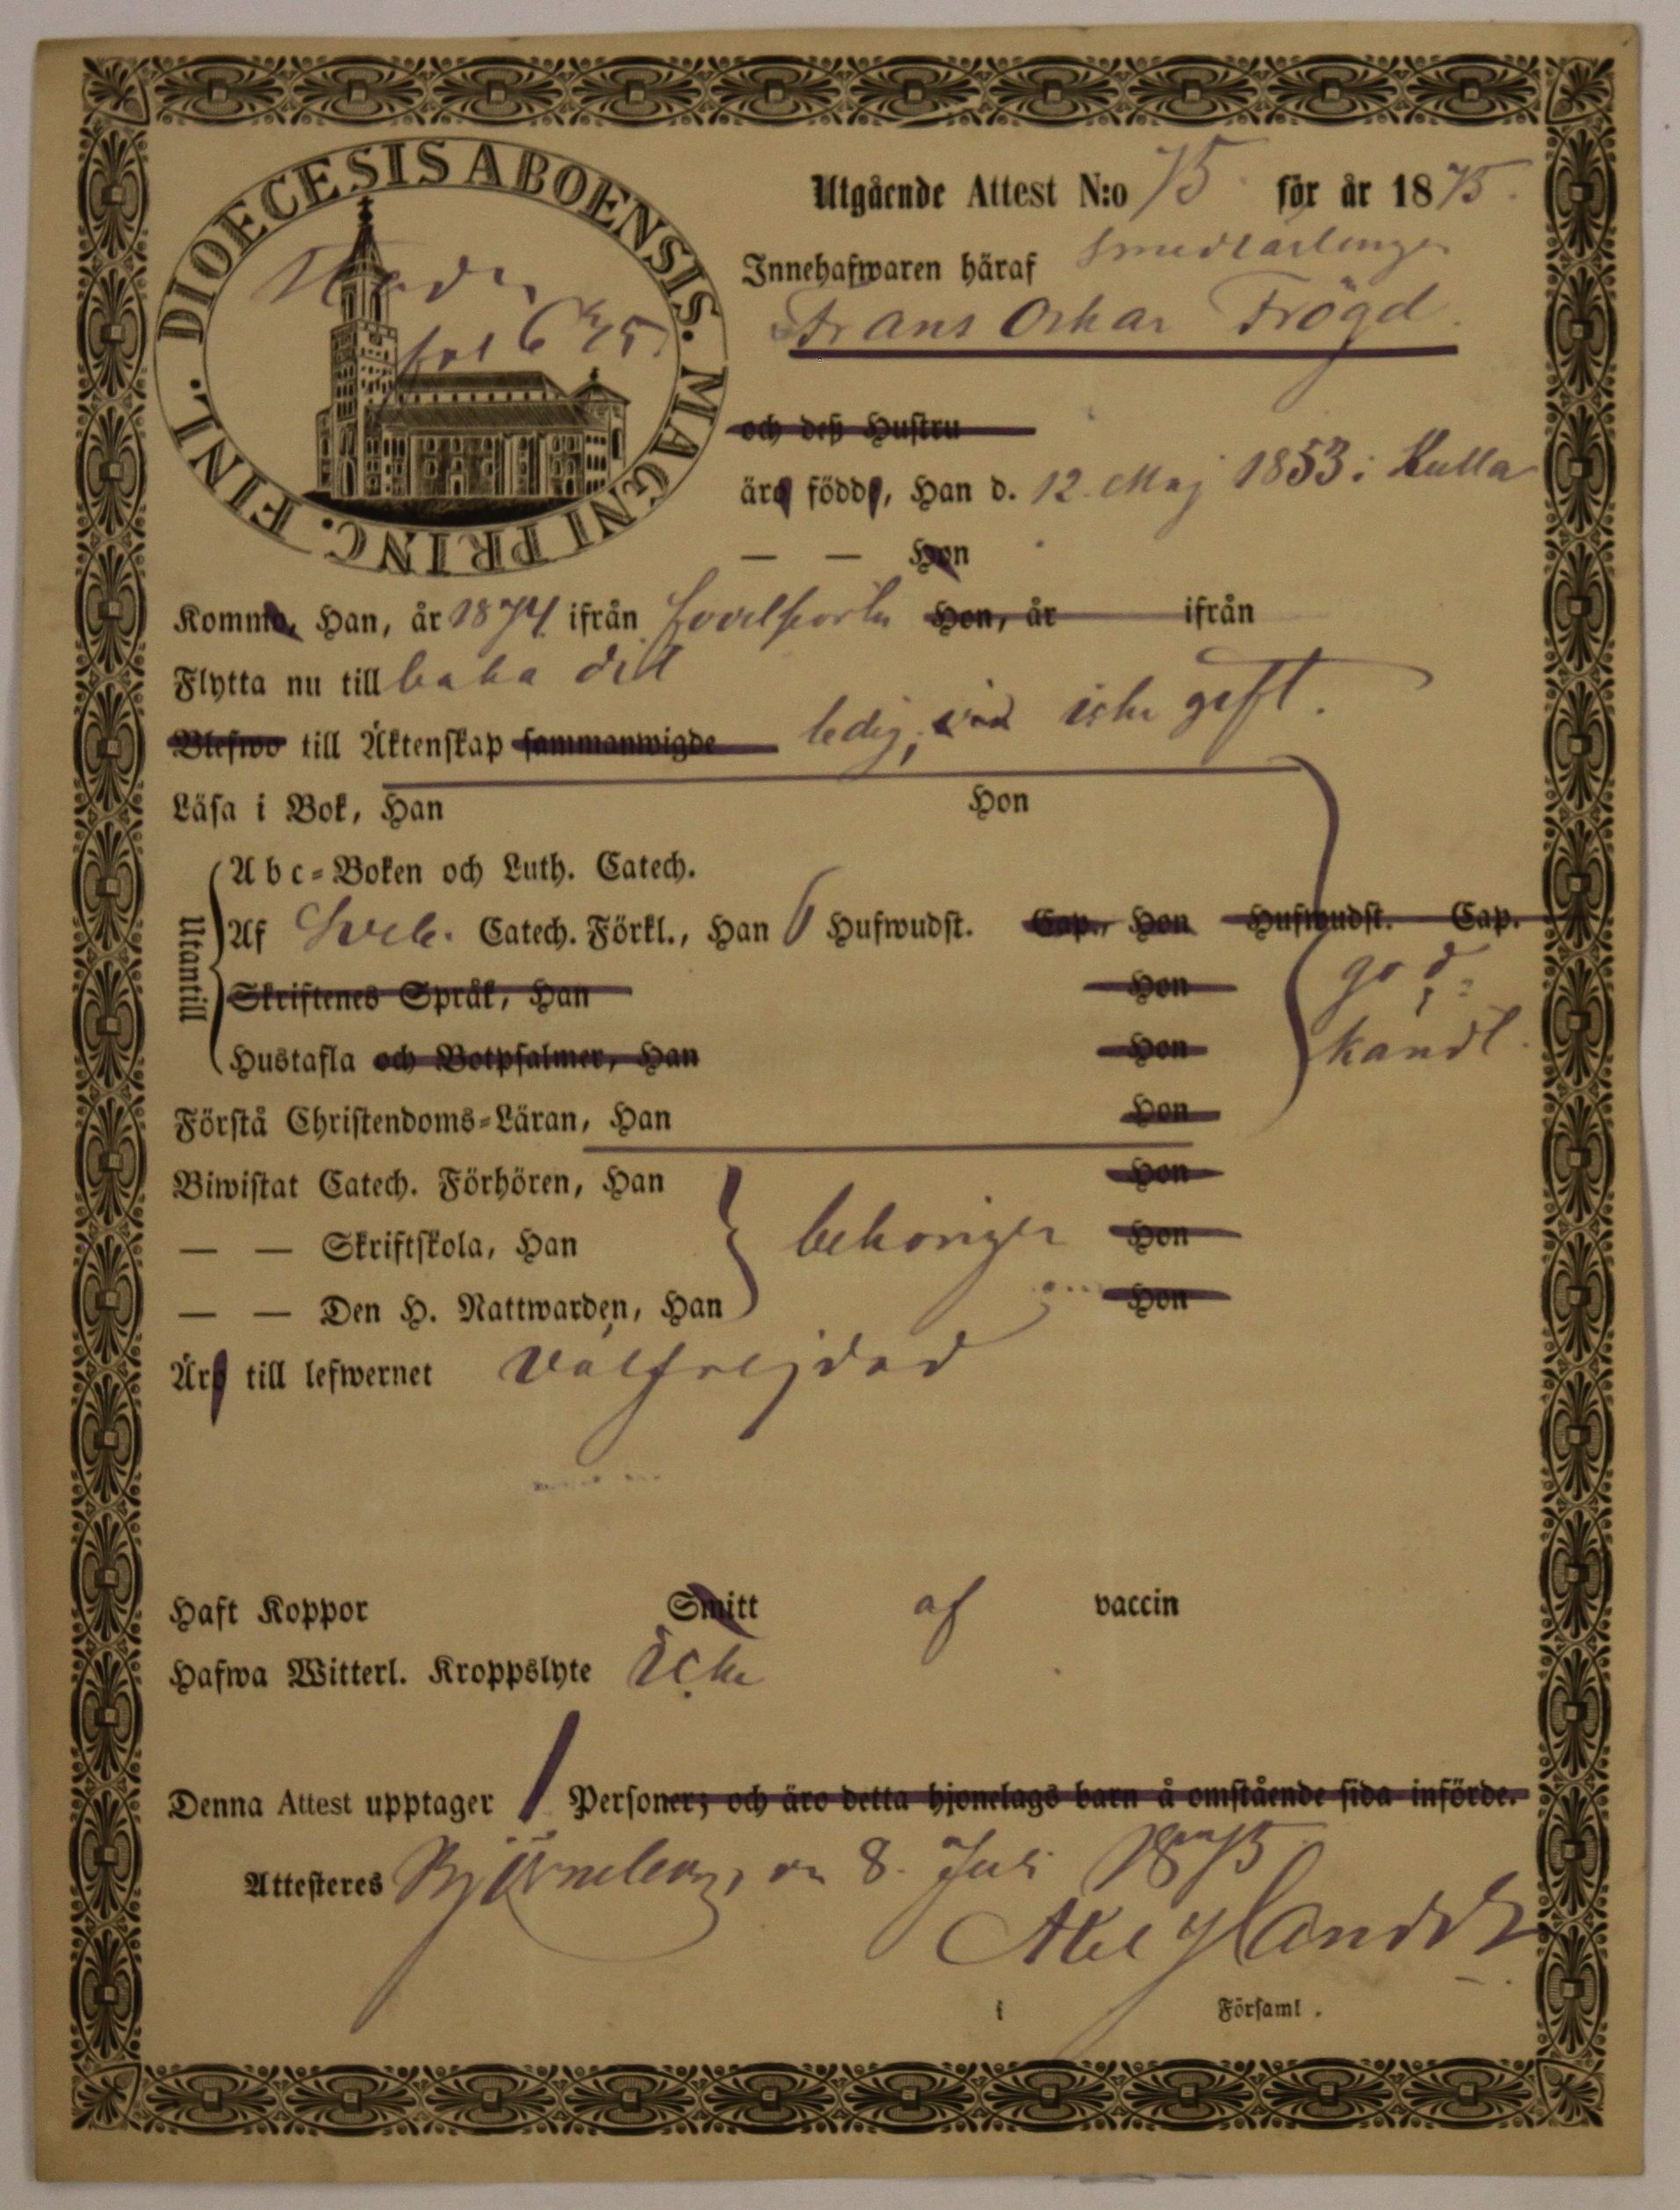 DIOECESIS ABOENSIS. MAGNI PRINC. FINL.
Utgående Attest N:o 75. för år 1875.
Innehafwaren häraf Smedlärlingen
Frans Oskar Frögd.
och deß Hustru
äro födde, Han d. 12. Maj 1853 i Kulla
— — Hon
Komne, Han, år 1874 ifrån Hon, år ifrån
Flytta nu till baka dit
Blefwo till Äktenskap sammanwigde ledig, icke gift.
Läsa i Bok, Han Hon
Utantill
Abc-Boken och Luth. Catech.
Af Sveb. Catech. Förkl., Han 6 Hufwudst. Cap., Hon Hufwudst. Cap.
Skriftenes Språk, Han Hon
Hustafla och Botpsalmer, Han Hon
god-
kändt.
Förstå Christendoms-Läran, Han Hon
Biwistat Catech. Förhören, Han Hon
— — Skriftskola, Han behörigen Hon
— — Den H. Nattwarden, Han Hon
Äro till lefwernet välfrejdad
Haft Koppor Smitt af vaccin
Hafwa Witterl. Kroppslyte Icke
Denna Attest upptager 1 Personer; och äro detta hjonelags barn å omstående sida införde.
Attesteres Björneborg, den 8. Juli 1875.
Axel
i Församl.